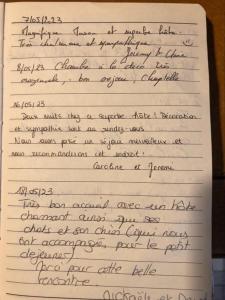 7/05/23
Magnifique maison et superbe hôte.
Très chaleureux et sympathique
Jeremy et Claire
8/05/23 Chambre à la déco très
originale, bon séjour, Chaptelle
16/05/23
Deux nuits chez ce superbe hôte ! Décoration
et sympathie sont au rendez-vous.
Nous avons passé un séjour merveilleux et
nous recommanderons cet endroit !
Caroline et Jérémi
18/05/23
Très bon accueil avec un hôte
charmant ainsi que ses
chats et son chien (qui nous
ont accompagné, pour le petit
dejeuner)
Merci pour cette belle
rencontre
Mickaële et